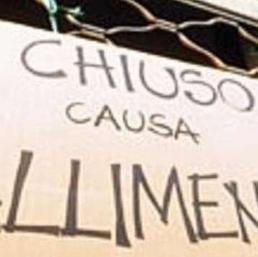 CHIUSO
CAUSA
LLIMEN